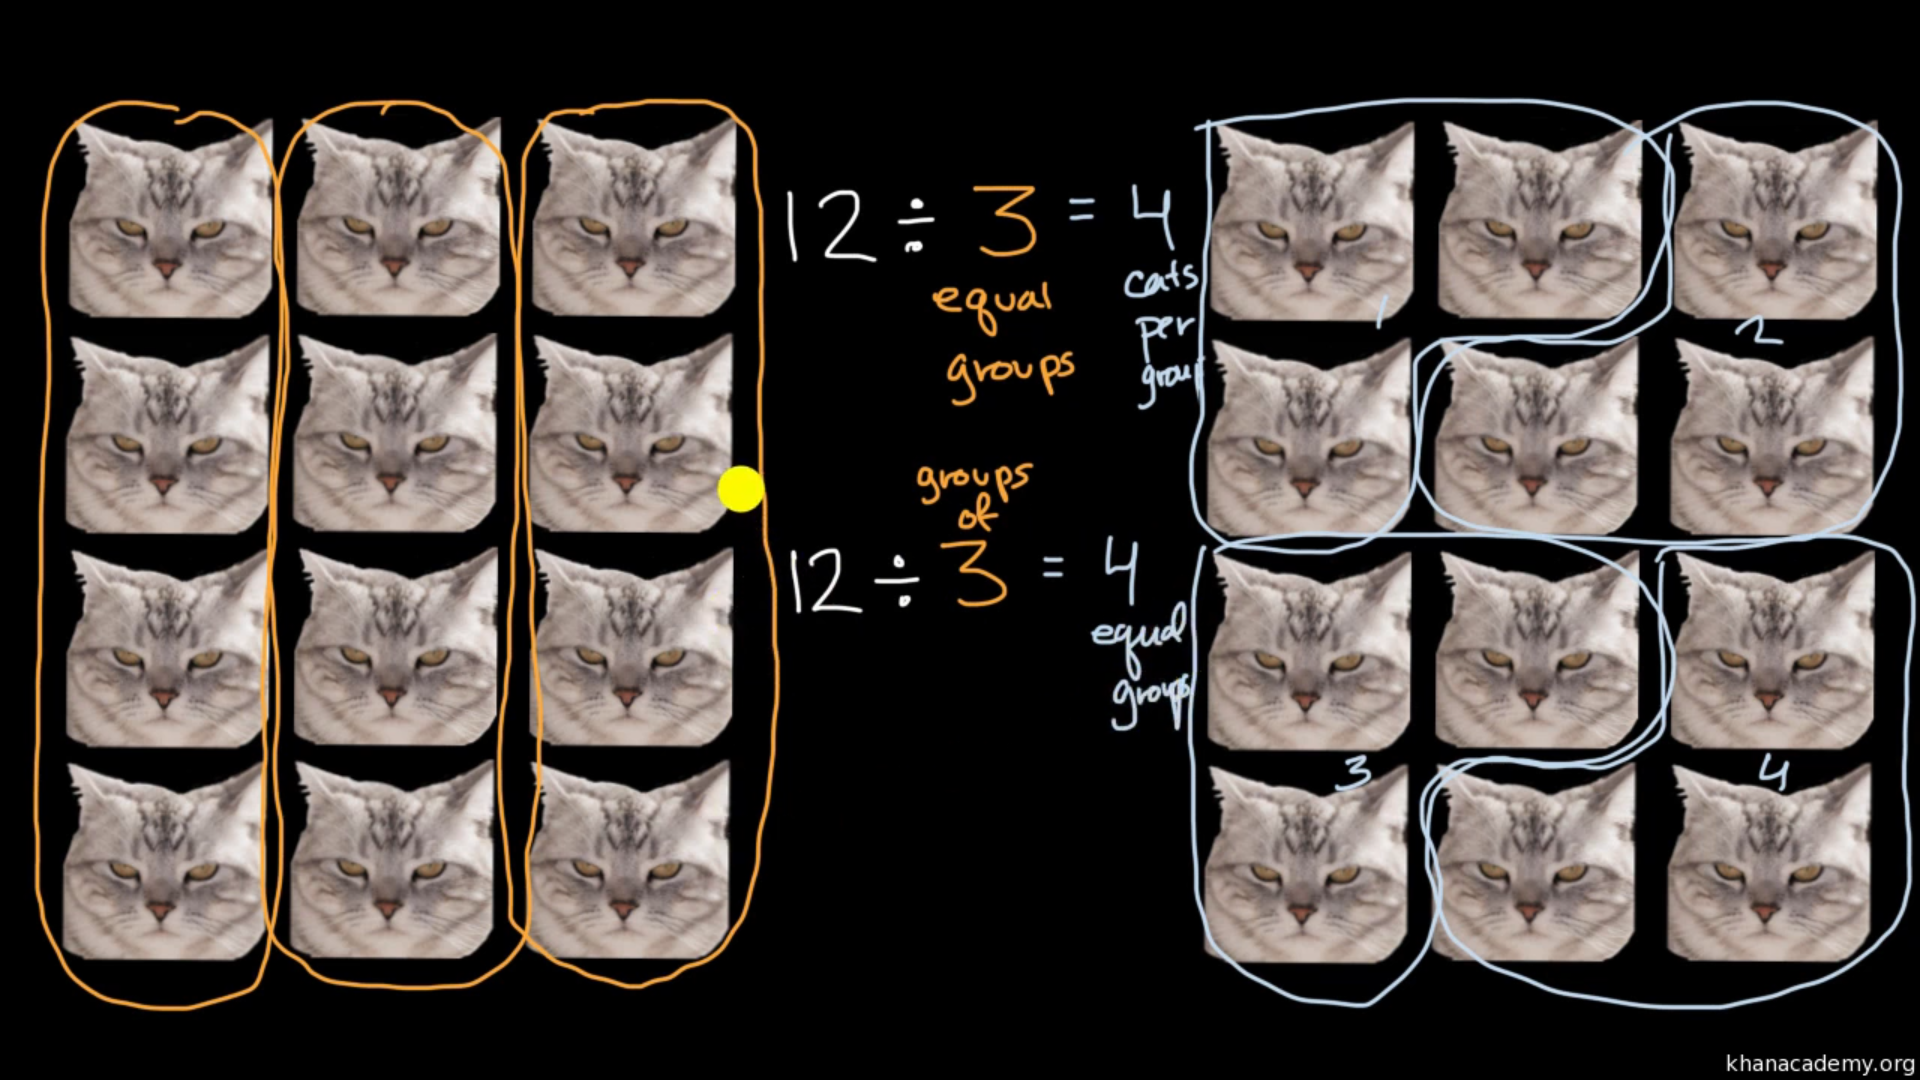 12 ÷ 3 = 4
equal
groups
cats
per
group
groups
of
12 ÷ 3 = 4
equal
groups
1
2
3
4
khanacademy.org